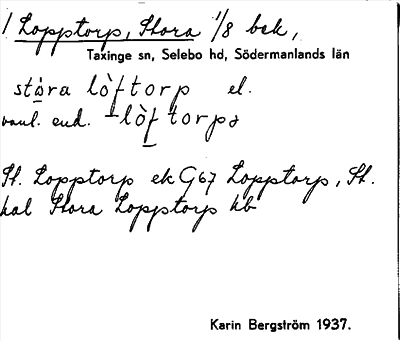 1 Lopptorp, Stora 1/8 bek,
Taxinge sn, Selebo hd, Södermanlands län
stóra lòftorp el.
vanl. end. -lòftorpə
St. Lopptorp ek G67 Lopptorp, St.
kal Stora Lopptorp hb
Karin Bergström 1937.